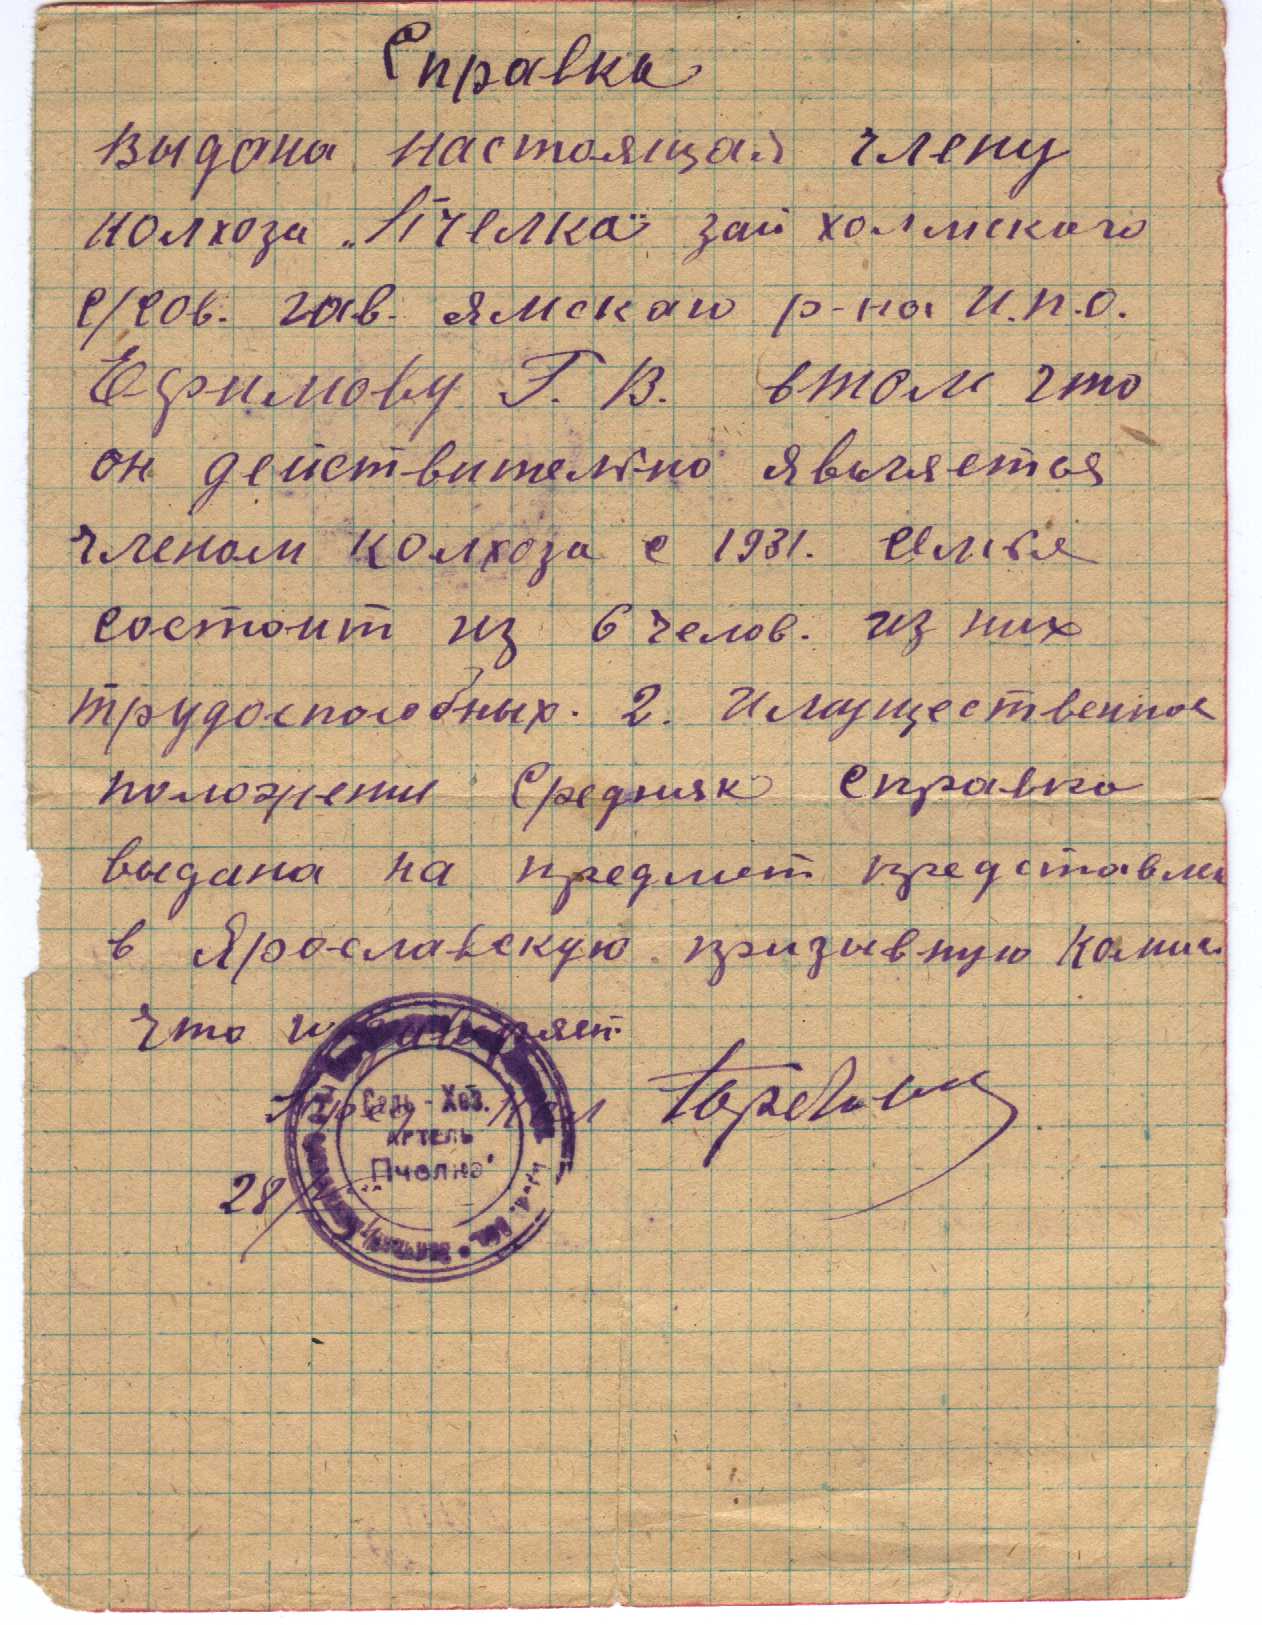 Справка
Выдана настоящая члену
колхоза „Пчелка" зайхолмского
с/сов. гав. ямского р-на И.П.О.
Ефимову Г. В. втом что
он действительно является
членом колхоза с 1931. Семья
состоит из 6 челов. из них
трудоспособных. 2. Имущественное
положении Средняк Справка
выдана на предмет представле
в Ярославскую призывную комис
что и заверяет
Пред. Кол
Сель-Хоз.
АРТЕЛЬ
„Пчелка"
28/